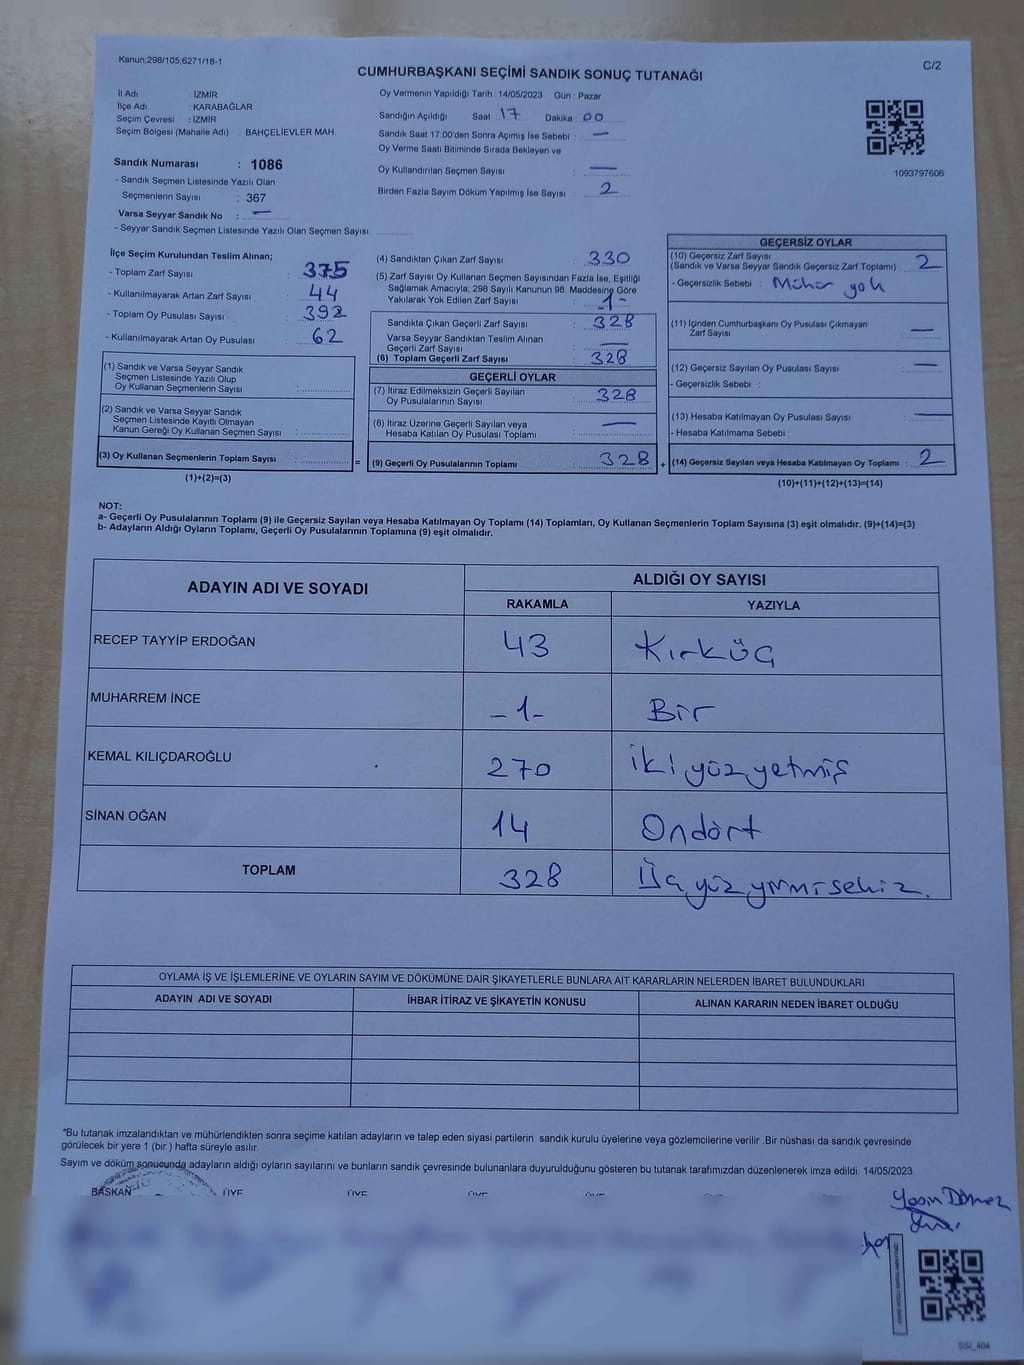 Kanun;298/105;6271/18-1
C/2
CUMHURBAŞKANI SEÇİMİ SANDIK SONUÇ TUTANAĞI
İl Adı : İZMİR
İlçe Adı : KARABAĞLAR
Seçim Çevresi : İZMİR
Seçim Bölgesi (Mahalle Adı) : BAHÇELİEVLER MAH.
Sandık Numarası : 1086
- Sandık Seçmen Listesinde Yazılı Olan
Seçmenlerin Sayısı : 367
Varsa Seyyar Sandık No : —
- Seyyar Sandık Seçmen Listesinde Yazılı Olan Seçmen Sayısı
Oy Vermenin Yapıldığı Tarih : 14/05/2023 Gün : Pazar
Sandığın Açıldığı Saat 17 Dakika : 00
Sandık Saat 17:00'den Sonra Açımış İse Sebebi : —
Oy Verme Saati Bitiminde Sırada Bekleyen ve
Oy Kullandırılan Seçmen Sayısı : —
Birden Fazla Sayım Döküm Yapılmış İse Sayısı : 2
1093797606
İlçe Seçim Kurulundan Teslim Alınan;
- Toplam Zarf Sayısı : 375
- Kullanılmayarak Artan Zarf Sayısı : 44
- Toplam Oy Pusulası Sayısı : 392
- Kullanılmayarak Artan Oy Pusulası : 62
(1) Sandık ve Varsa Seyyar Sandık
Seçmen Listesinde Yazılı Olup
Oy Kullanan Seçmenlerin Sayısı :
(2) Sandık ve Varsa Seyyar Sandık
Seçmen Listesinde Kayıtlı Olmayan
Kanun Gereği Oy Kullanan Seçmen Sayısı :
(3) Oy Kullanan Seçmenlerin Toplam Sayısı : =
(1)+(2)=(3)
(4) Sandıktan Çıkan Zarf Sayısı : 330
(5) Zarf Sayısı Oy Kullanan Seçmen Sayısından Fazla İse, Eşitliği
Sağlamak Amacıyla; 298 Sayılı Kanunun 98. Maddesine Göre
Yakılarak Yok Edilen Zarf Sayısı : -1-
Sandıkta Çıkan Geçerli Zarf Sayısı : 328
Varsa Seyyar Sandıktan Teslim Alınan
Geçerli Zarf Sayısı : —
(6) Toplam Geçerli Zarf Sayısı : 328
GEÇERLİ OYLAR
(7) İtiraz Edilmeksizin Geçerli Sayılan
Oy Pusulalarının Sayısı : 328
(8) İtiraz Üzerine Geçerli Sayılan veya
Hesaba Katılan Oy Pusulası Toplamı : —
(9) Geçerli Oy Pusulalarının Toplamı : 328 +
GEÇERSİZ OYLAR
(10) Geçersiz Zarf Sayısı
(Sandık ve Varsa Seyyar Sandık Geçersiz Zarf Toplamı) : 2
- Geçersizlik Sebebi : Mühür yok
(11) İçinden Cumhurbaşkanı Oy Pusulası Çıkmayan
Zarf Sayısı : —
(12) Geçersiz Sayılan Oy Pusulası Sayısı : —
- Geçersizlik Sebebi :
(13) Hesaba Katılmayan Oy Pusulası Sayısı : —
- Hesaba Katılmama Sebebi :
(14) Geçersiz Sayılan veya Hesaba Katılmayan Oy Toplamı : 2
(10)+(11)+(12)+(13)=(14)
NOT:
a- Geçerli Oy Pusulalarının Toplamı (9) ile Geçersiz Sayılan veya Hesaba Katılmayan Oy Toplamı (14) Toplamları, Oy Kullanan Seçmenlerin Toplam Sayısına (3) eşit olmalıdır. (9)+(14)=(3)
b- Adayların Aldığı Oyların Toplamı, Geçerli Oy Pusulalarının Toplamına (9) eşit olmalıdır.
ADAYIN ADI VE SOYADI ALDIĞI OY SAYISI
RAKAMLA YAZIYLA
RECEP TAYYİP ERDOĞAN 43 Kırküç
MUHARREM İNCE -1- Bir
KEMAL KILIÇDAROĞLU 270 İkiyüzyetmiş
SİNAN OĞAN 14 Ondört
TOPLAM 328 Üçyüzyirmisekiz.
OYLAMA İŞ VE İŞLEMLERİNE VE OYLARIN SAYIM VE DÖKÜMÜNE DAİR ŞİKAYETLERLE BUNLARA AİT KARARLARIN NELERDEN İBARET BULUNDUKLARI
ADAYIN ADI VE SOYADI İHBAR İTİRAZ VE ŞİKAYETİN KONUSU ALINAN KARARIN NEDEN İBARET OLDUĞU
*Bu tutanak imzalandıktan ve mühürlendikten sonra seçime katılan adayların ve talep eden siyasi partilerin sandık kurulu üyelerine veya gözlemcilerine verilir .Bir nüshası da sandık çevresinde
görülecek bir yere 1 (bir ) hafta süreyle asılır.
Sayım ve döküm sonucunda adayların aldığı oyların sayılarını ve bunların sandık çevresinde bulunanlara duyurulduğunu gösteren bu tutanak tarafımızdan düzenlenerek imza edildi. 14/05/2023
BAŞKAN ÜYE ÜYE ÜYE ÜYE ÜYE
Yasin Dönmez
SSI_404